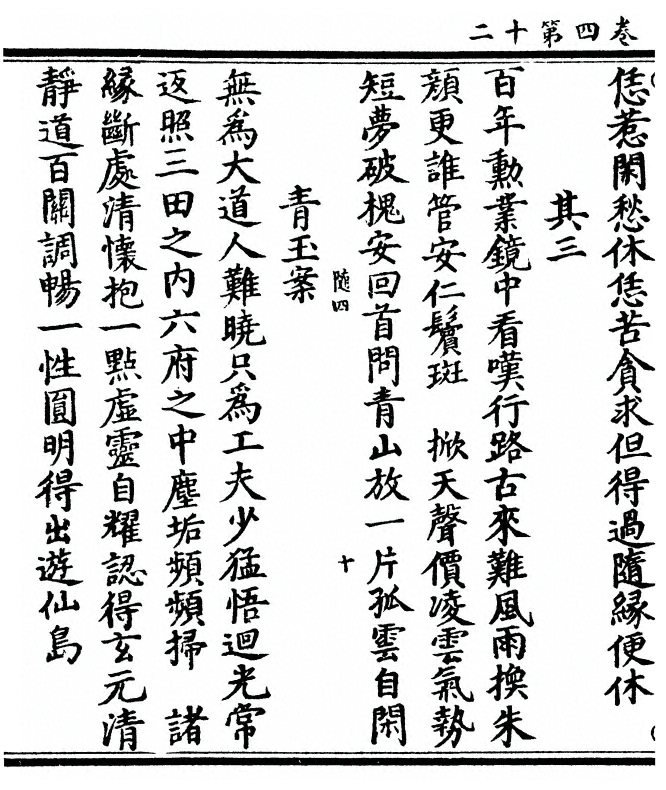 卷四第十二
恁惹閑愁休恁苦貪求但得過隨緣便休
其三
百年勳業鏡中看嘆行路古來難風雨換朱
顔更誰管安仁鬢斑　掀天聲價凌雲氣勢
短夢破槐安回首問青山放一片孤雲自閑
隨四
十
青玉案
無爲大道人難曉只爲工夫少猛悟迴光常
返照三田之内六府之中塵垢頻頻掃　諸
緣斷處清懷抱一點虛靈自耀認得玄元清
靜道百關調暢一性圓明得出遊仙島